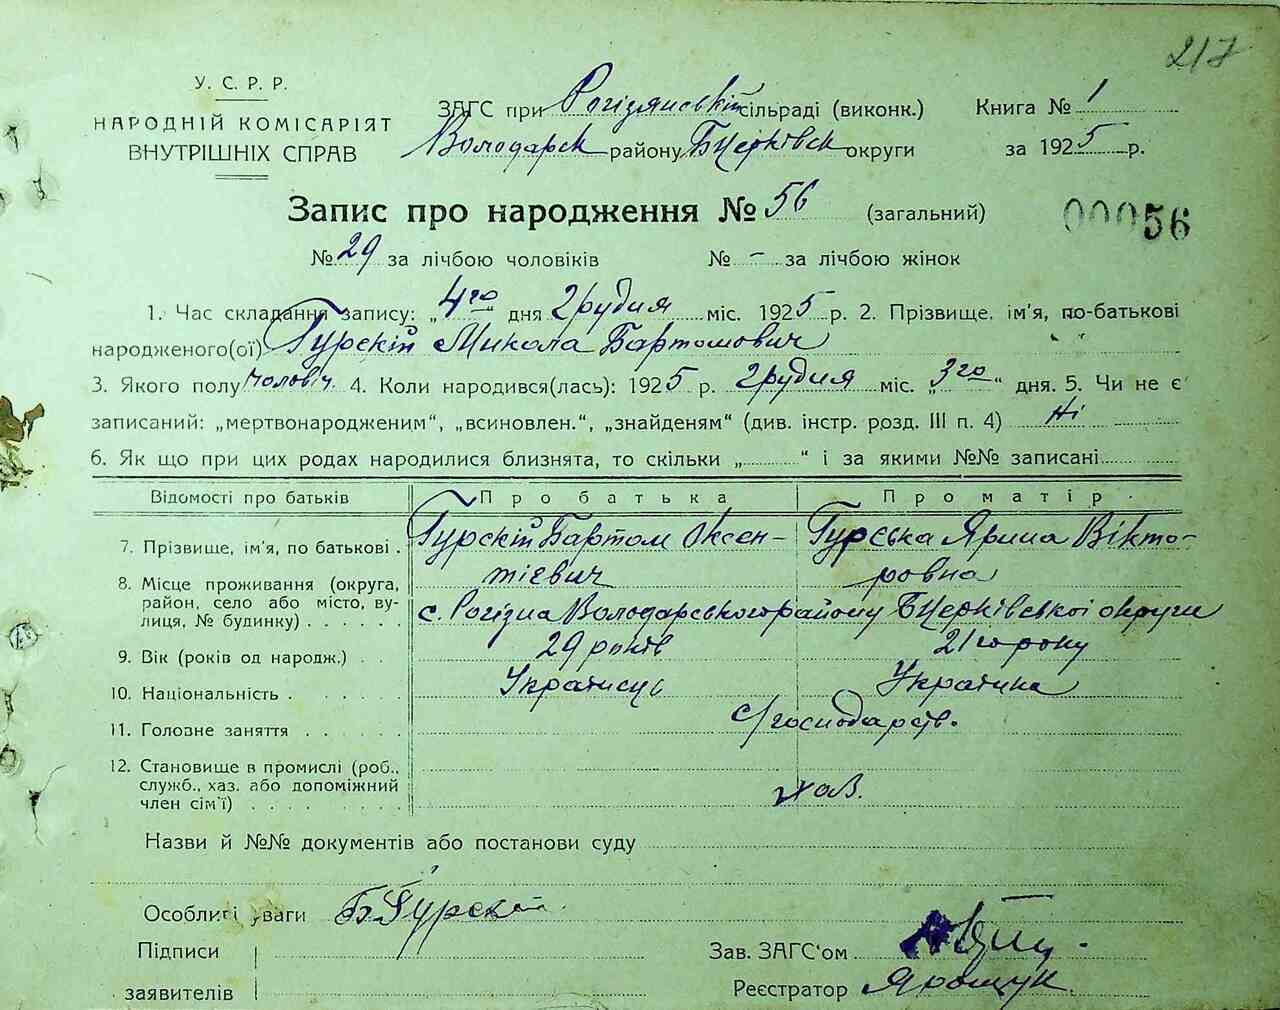 217
У. С. Р. Р.
НАРОДНІЙ КОМІСАРІЯТ
ВНУТРІШНІХ СПРАВ
ЗАГС при Рогізянській сільраді (виконк.) Книга № 1
Володарск району БЦерківск округи за 1925 р.
Запис про народження № 56 (загальний) 00056
№ 29 за лічбою чоловіків № - за лічбою жінок
1. Час складання запису: „4го" дня Грудня міс. 1925 р. 2. Прізвище, ім'я, по-батькові
народженого(ої) Гурскій Микола Бартомович
3. Якого полу чоловіч. 4. Коли народився(лась): 1925 р. Грудня міс. „3го" дня. 5. Чи не є
записаний: „мертвонародженим", „всиновлен.", „знайденям" (див. інстр. розд. III п. 4) Ні
6. Як що при цих родах народилися близнята, то скільки „ " і за якими №№ записані
Відомості про батьків Про батька Про матір
7. Прізвище, ім'я, по батькові . Гурскій Бартом Оксен-
тієвич Гурська Ярина Вікто-
ровна
8. Місце проживання (округа,
район, село або місто, ву-
лиця, № будинку) . . . . . . с. Рогізна Володарського району БЦерківської округи
9. Вік (років од народж.) . . 29 років 21го року
10. Національність . . . . . . Українець Українка
11. Головне заняття . . . . . . с/господарств.
12. Становище в промислі (роб.,
служб., хаз. або допоміжний
член сім'ї) . . . . . . . .
Назви й №№ документів або постанови суду
Особливі уваги Б Гурскій
Підписи
заявителів
Зав. ЗАГС'ом
Реєстратор Ярощук